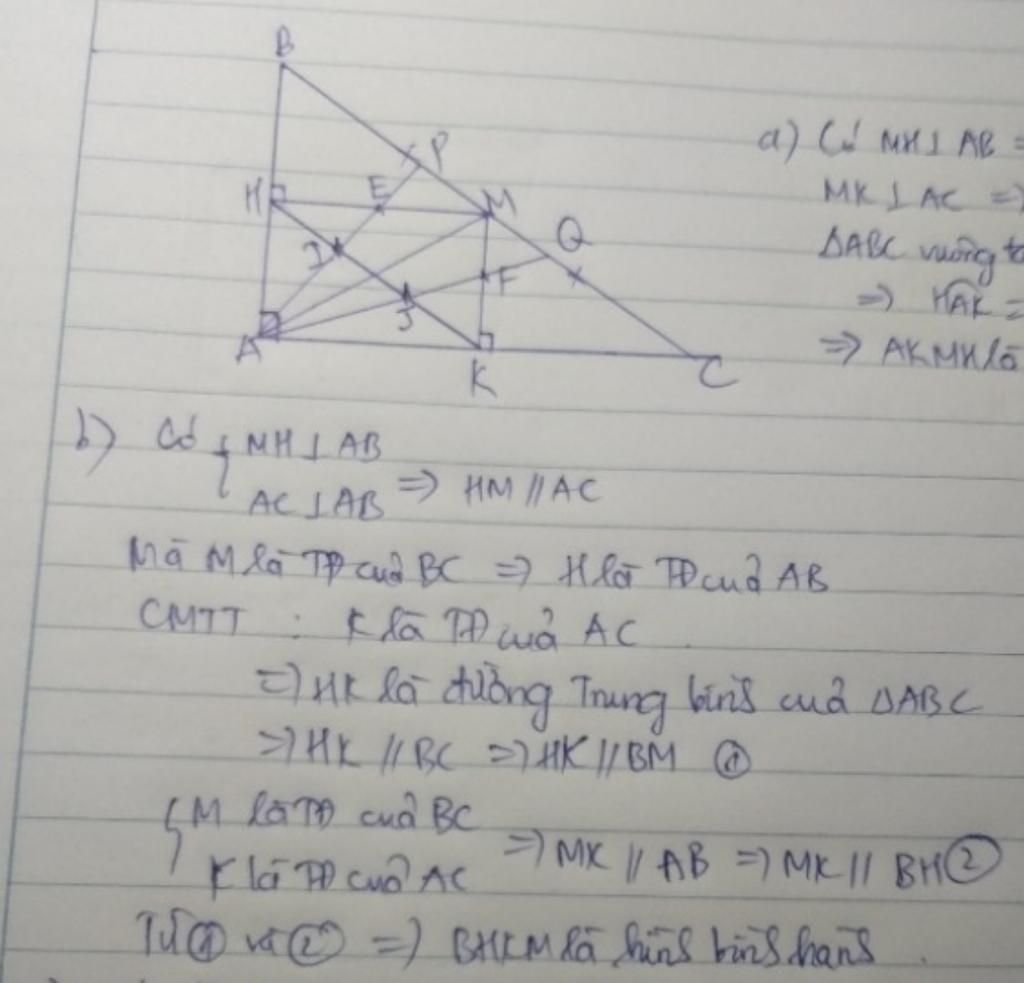 B
P
H
E
M
Q
I
F
J
A
K
C
a) Có MH⊥AB =
MK⊥AC =>
ΔABC vuông tạ
=> HAK =
=> AKMH là
b) Có { MH⊥AB
AC⊥AB => HM//AC
Mà M là TĐ của BC => H là TĐ của AB
CMTT : K là TĐ của AC
=> HK là đường Trung bình của ΔABC
=> HK //BC => HK//BM ①
{ M là TĐ của BC
K là TĐ của AC => MK // AB => MK// BH ②
Từ ① và ② => BHKM là hình bình hành .